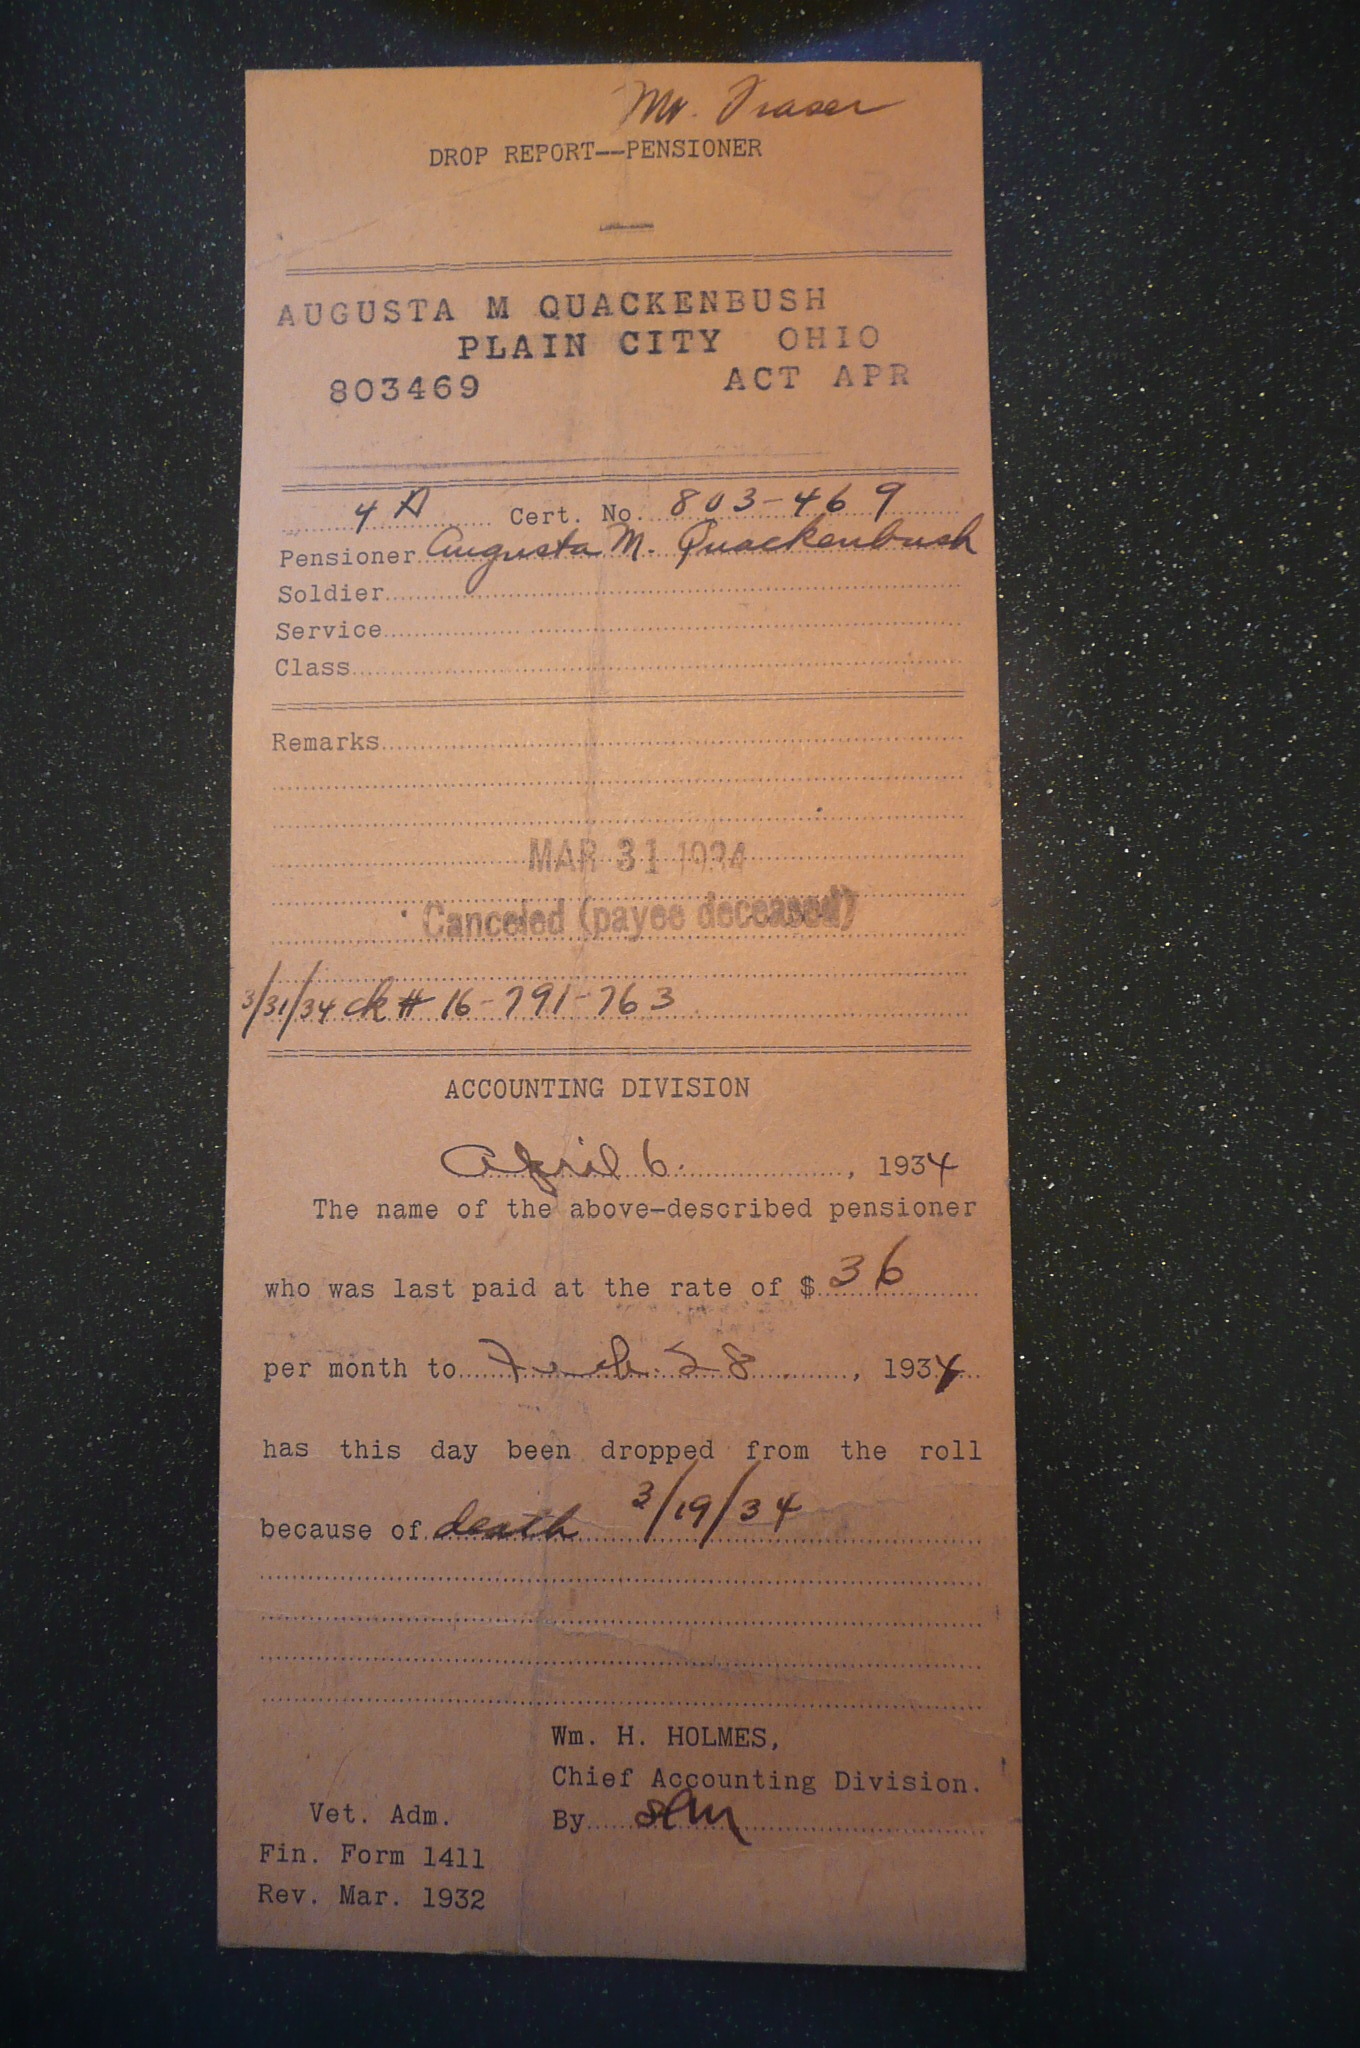 Mr. Fraser
DROP REPORT--PENSIONER
AUGUSTA M QUACKENBUSH
PLAIN CITY OHIO
803469 ACT APR
4 A Cert. No. 803-469
Pensioner Augusta M. Quackenbush
Soldier
Service
Class
Remarks
MAR 31 1934
Canceled (payee deceased)
3/31/34 ck # 16-791-763
ACCOUNTING DIVISION
April 6, 1934
The name of the above-described pensioner
who was last paid at the rate of $ 36
per month to Feb. 28, 1934
has this day been dropped from the roll
because of death 3/19/34
Wm. H. HOLMES,
Chief Accounting Division.
By
Vet. Adm.
Fin. Form 1411
Rev. Mar. 1932